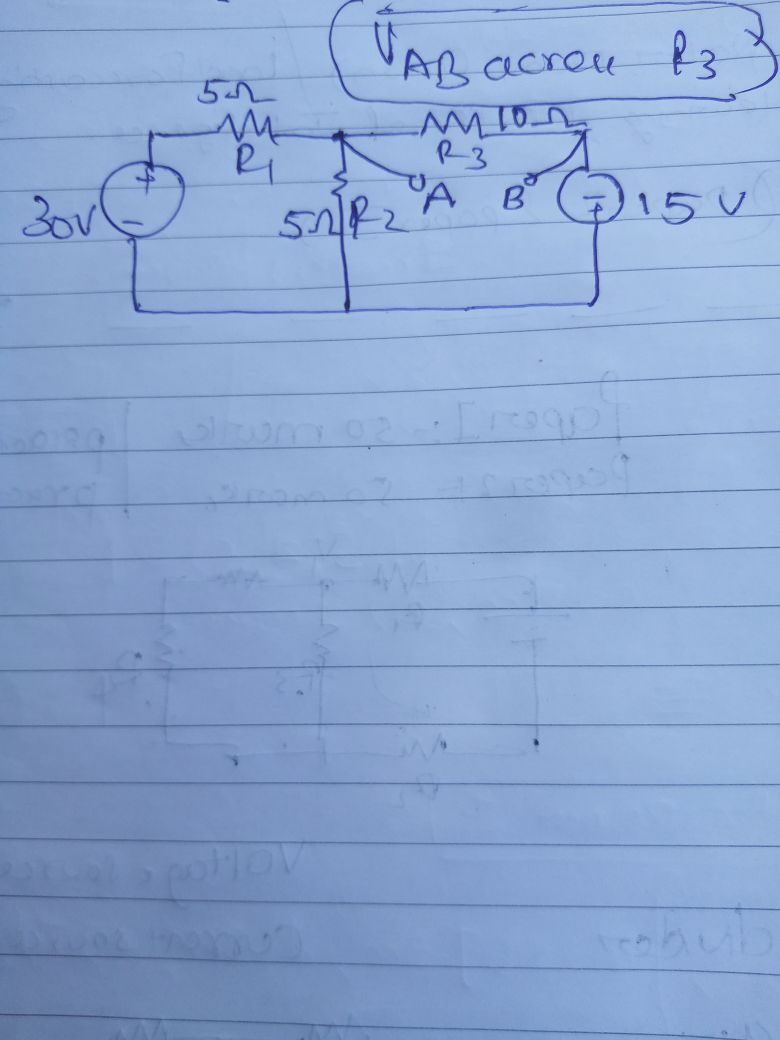 V_AB acrou R3
5Ω
10Ω
R1
R3
30V
+
−
5Ω R2
A
B
−
+
15 V